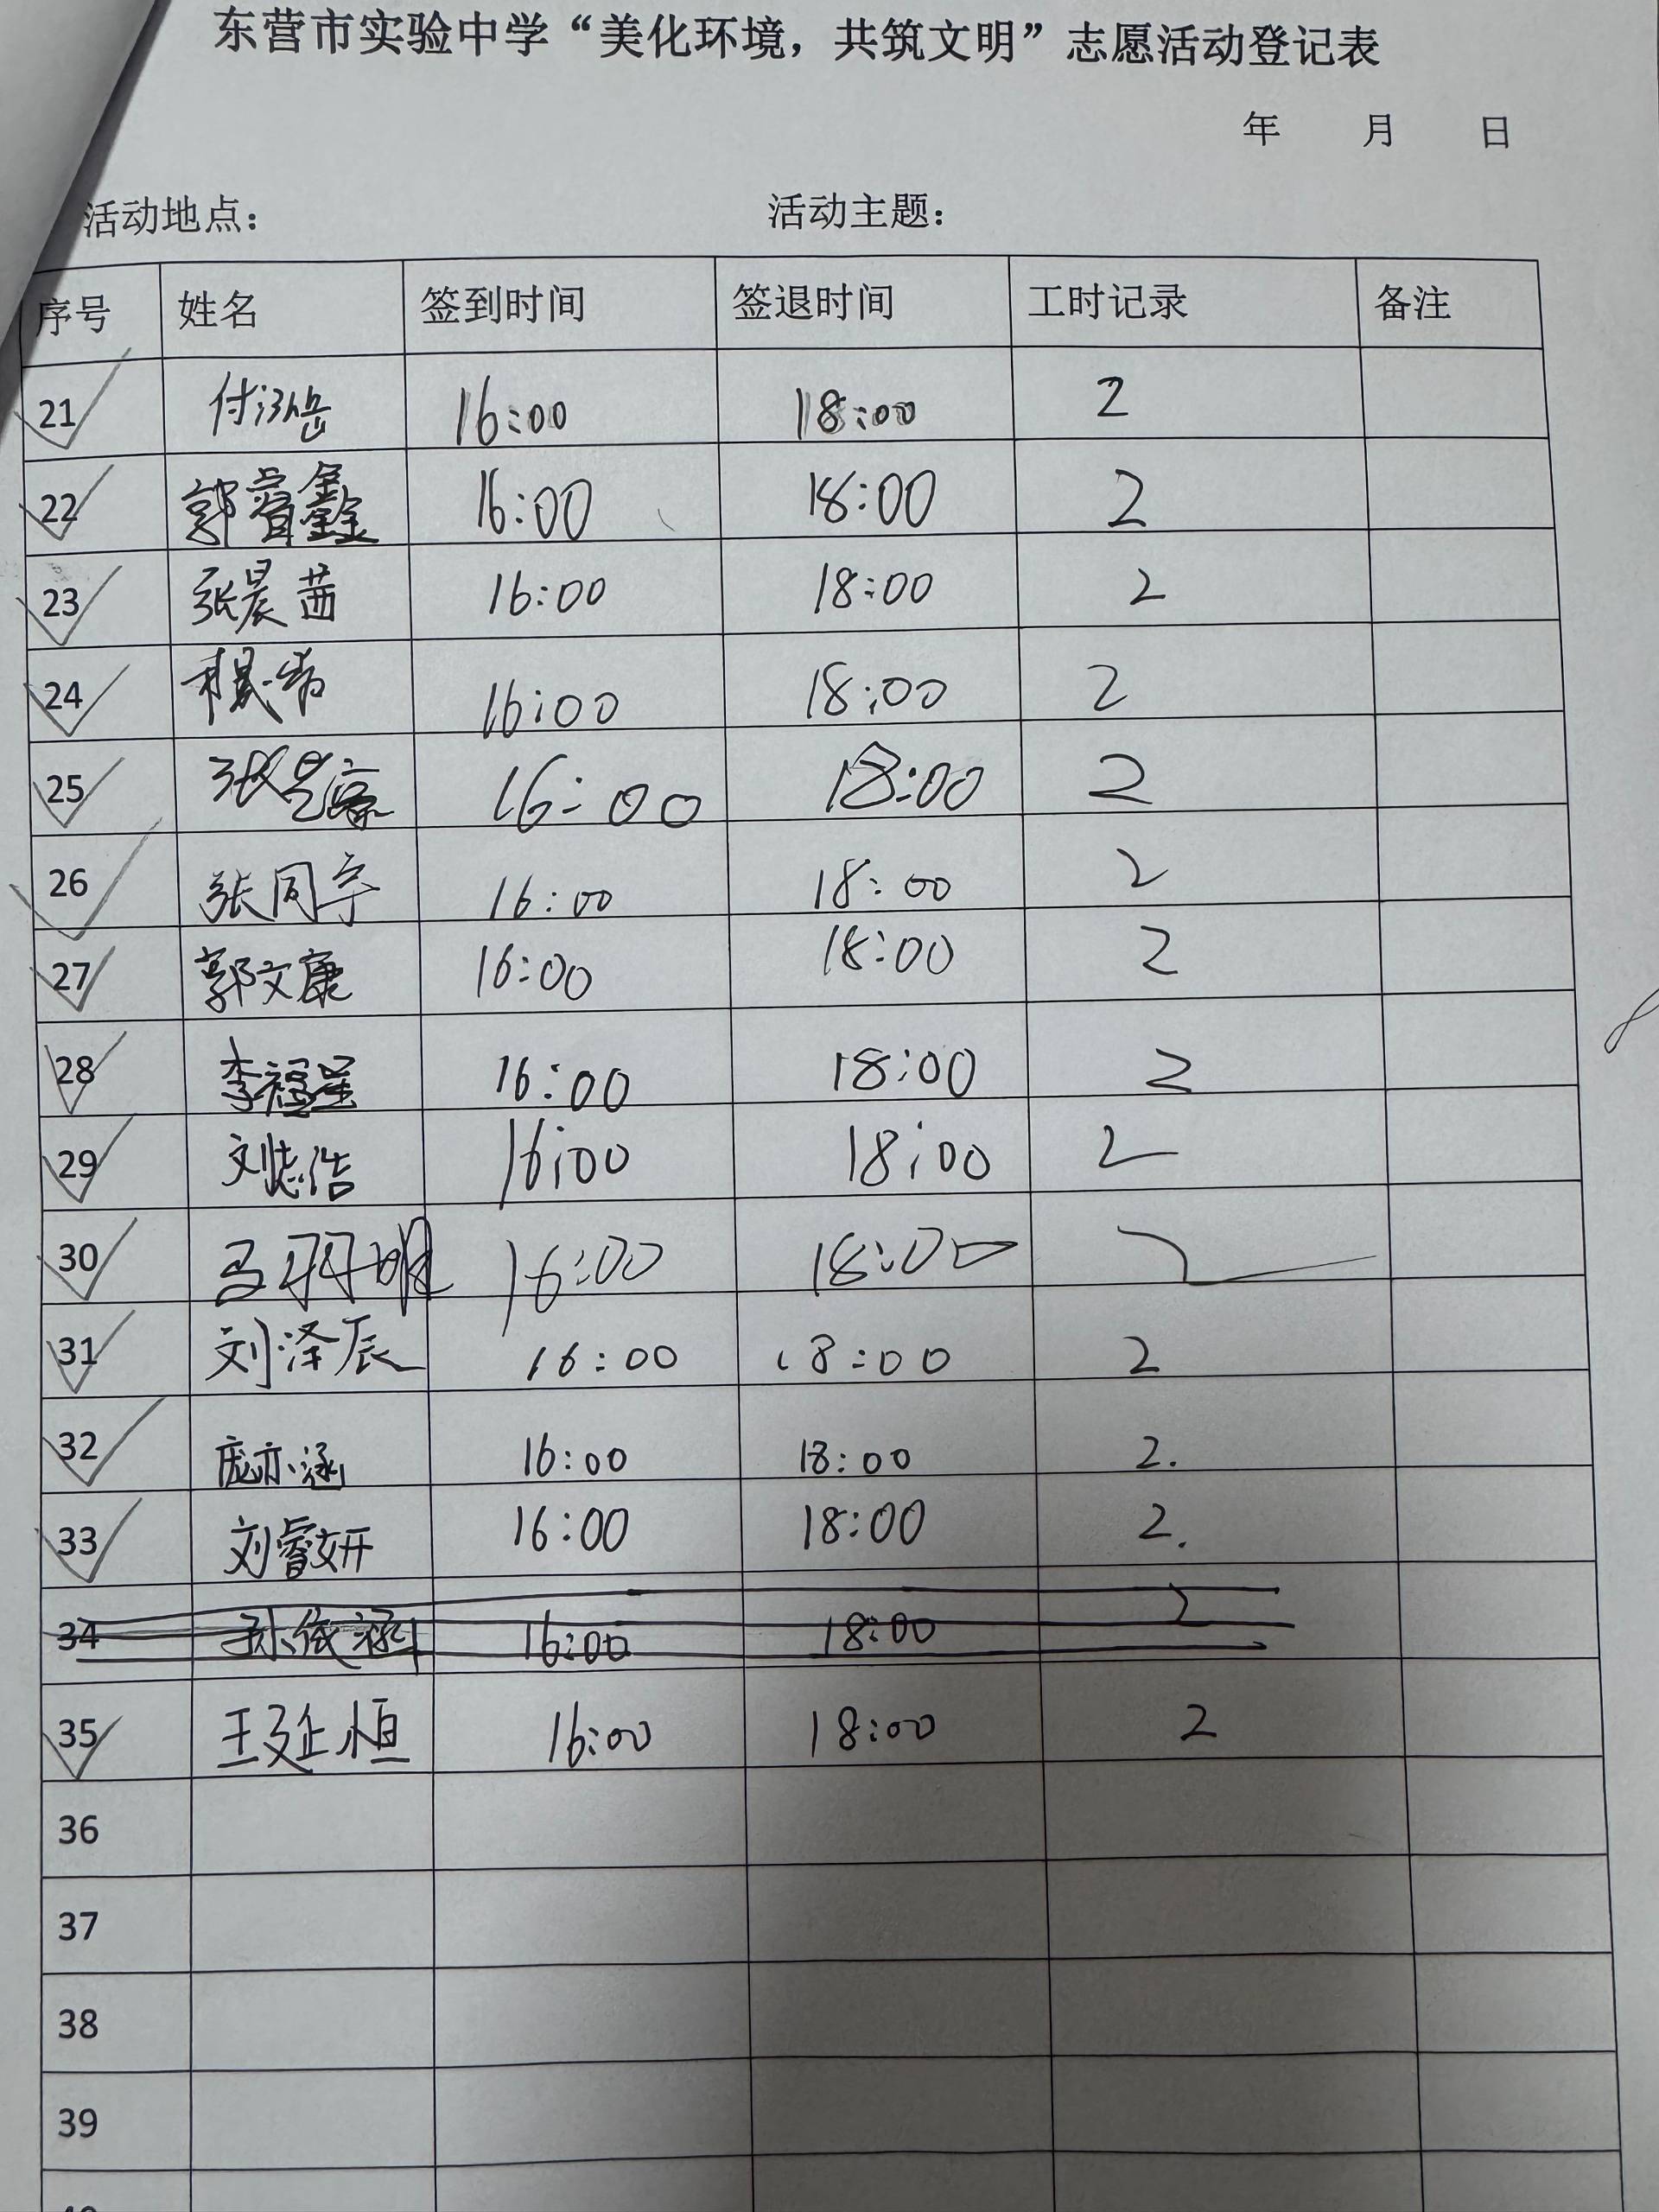 东营市实验中学“美化环境，共筑文明”志愿活动登记表
年 月 日
活动地点： 活动主题：
序号 姓名 签到时间 签退时间 工时记录 备注
21 付泓岳 16:00 18:00 2
22 郭睿鑫 16:00 18:00 2
23 张晨茜 16:00 18:00 2
24 16:00 18:00 2
25 张 豪 16:00 18:00 2
26 张同宇 16:00 18:00 2
27 郭文康 16:00 18:00 2
28 李福星 16:00 18:00 2
29 刘志浩 16:00 18:00 2
30 马 明 16:00 18:00 2
31 刘泽辰 16:00 18:00 2
32 庞亦涵 16:00 18:00 2.
33 刘睿妍 16:00 18:00 2.
34 孙依涵 16:00 18:00 2
35 王延恒 16:00 18:00 2
36
37
38
39